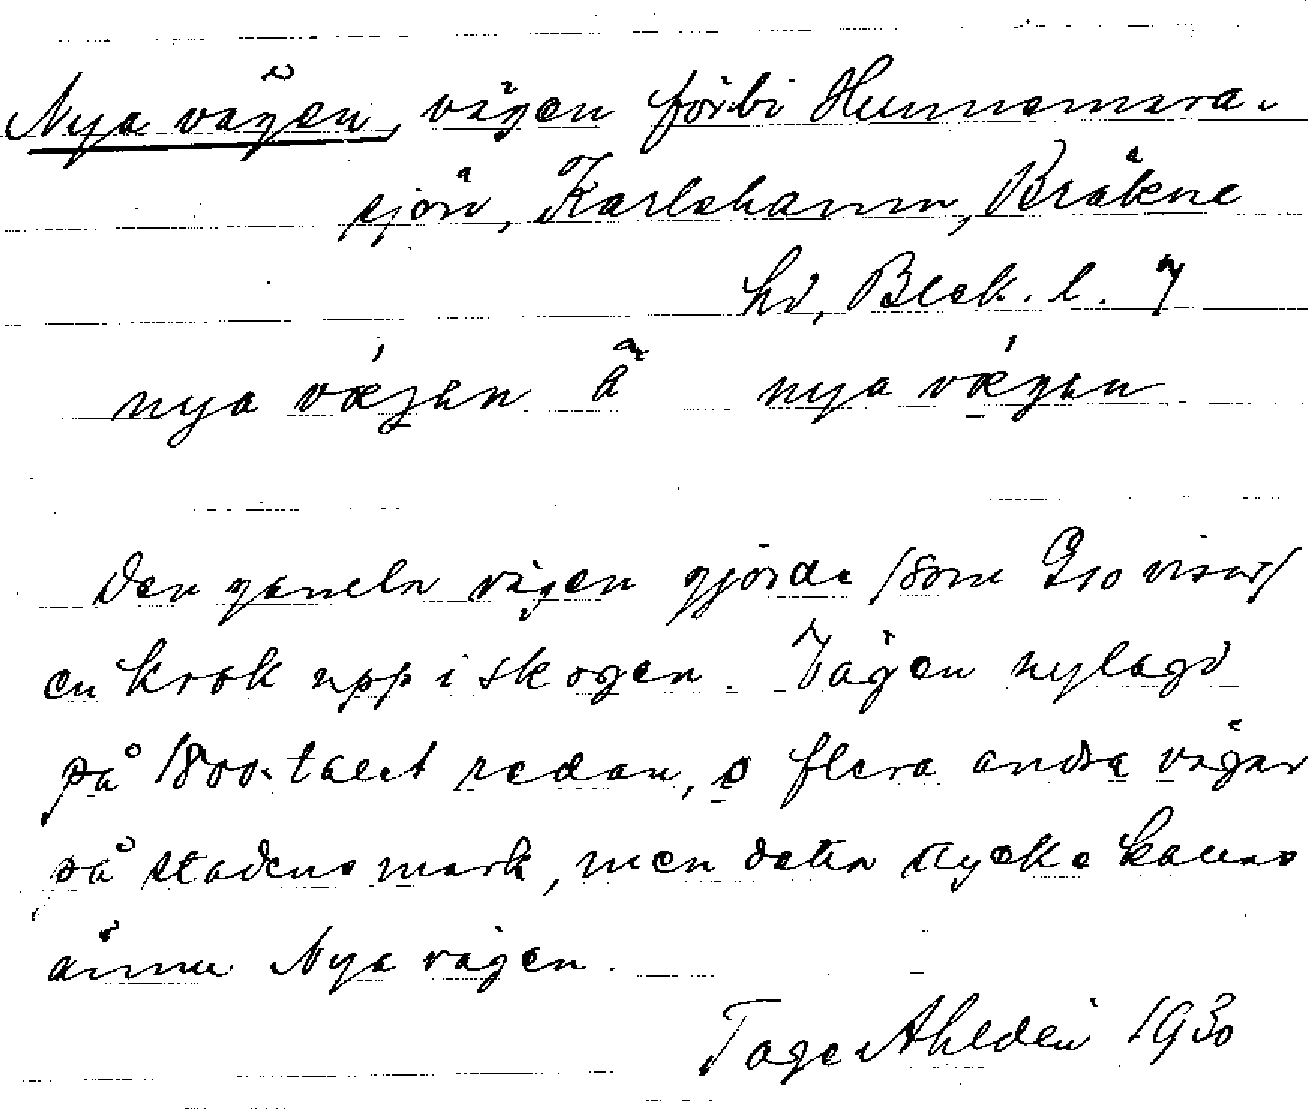 Nya vägen, vägen förbi Hunnemara-
sjön, Karlshamn, Bräkne
hd, Blek. l. 7
nya vægen å nya vægen
Den gamla vägen gjorde (som Geo visar)
en krok upp i skogen. Vägen nylagd
på 1800-talet redan, o flera andra vägar
på stadens mark, men detta stycke kallas
ännu Nya vägen.
Tage Ahldén 1930